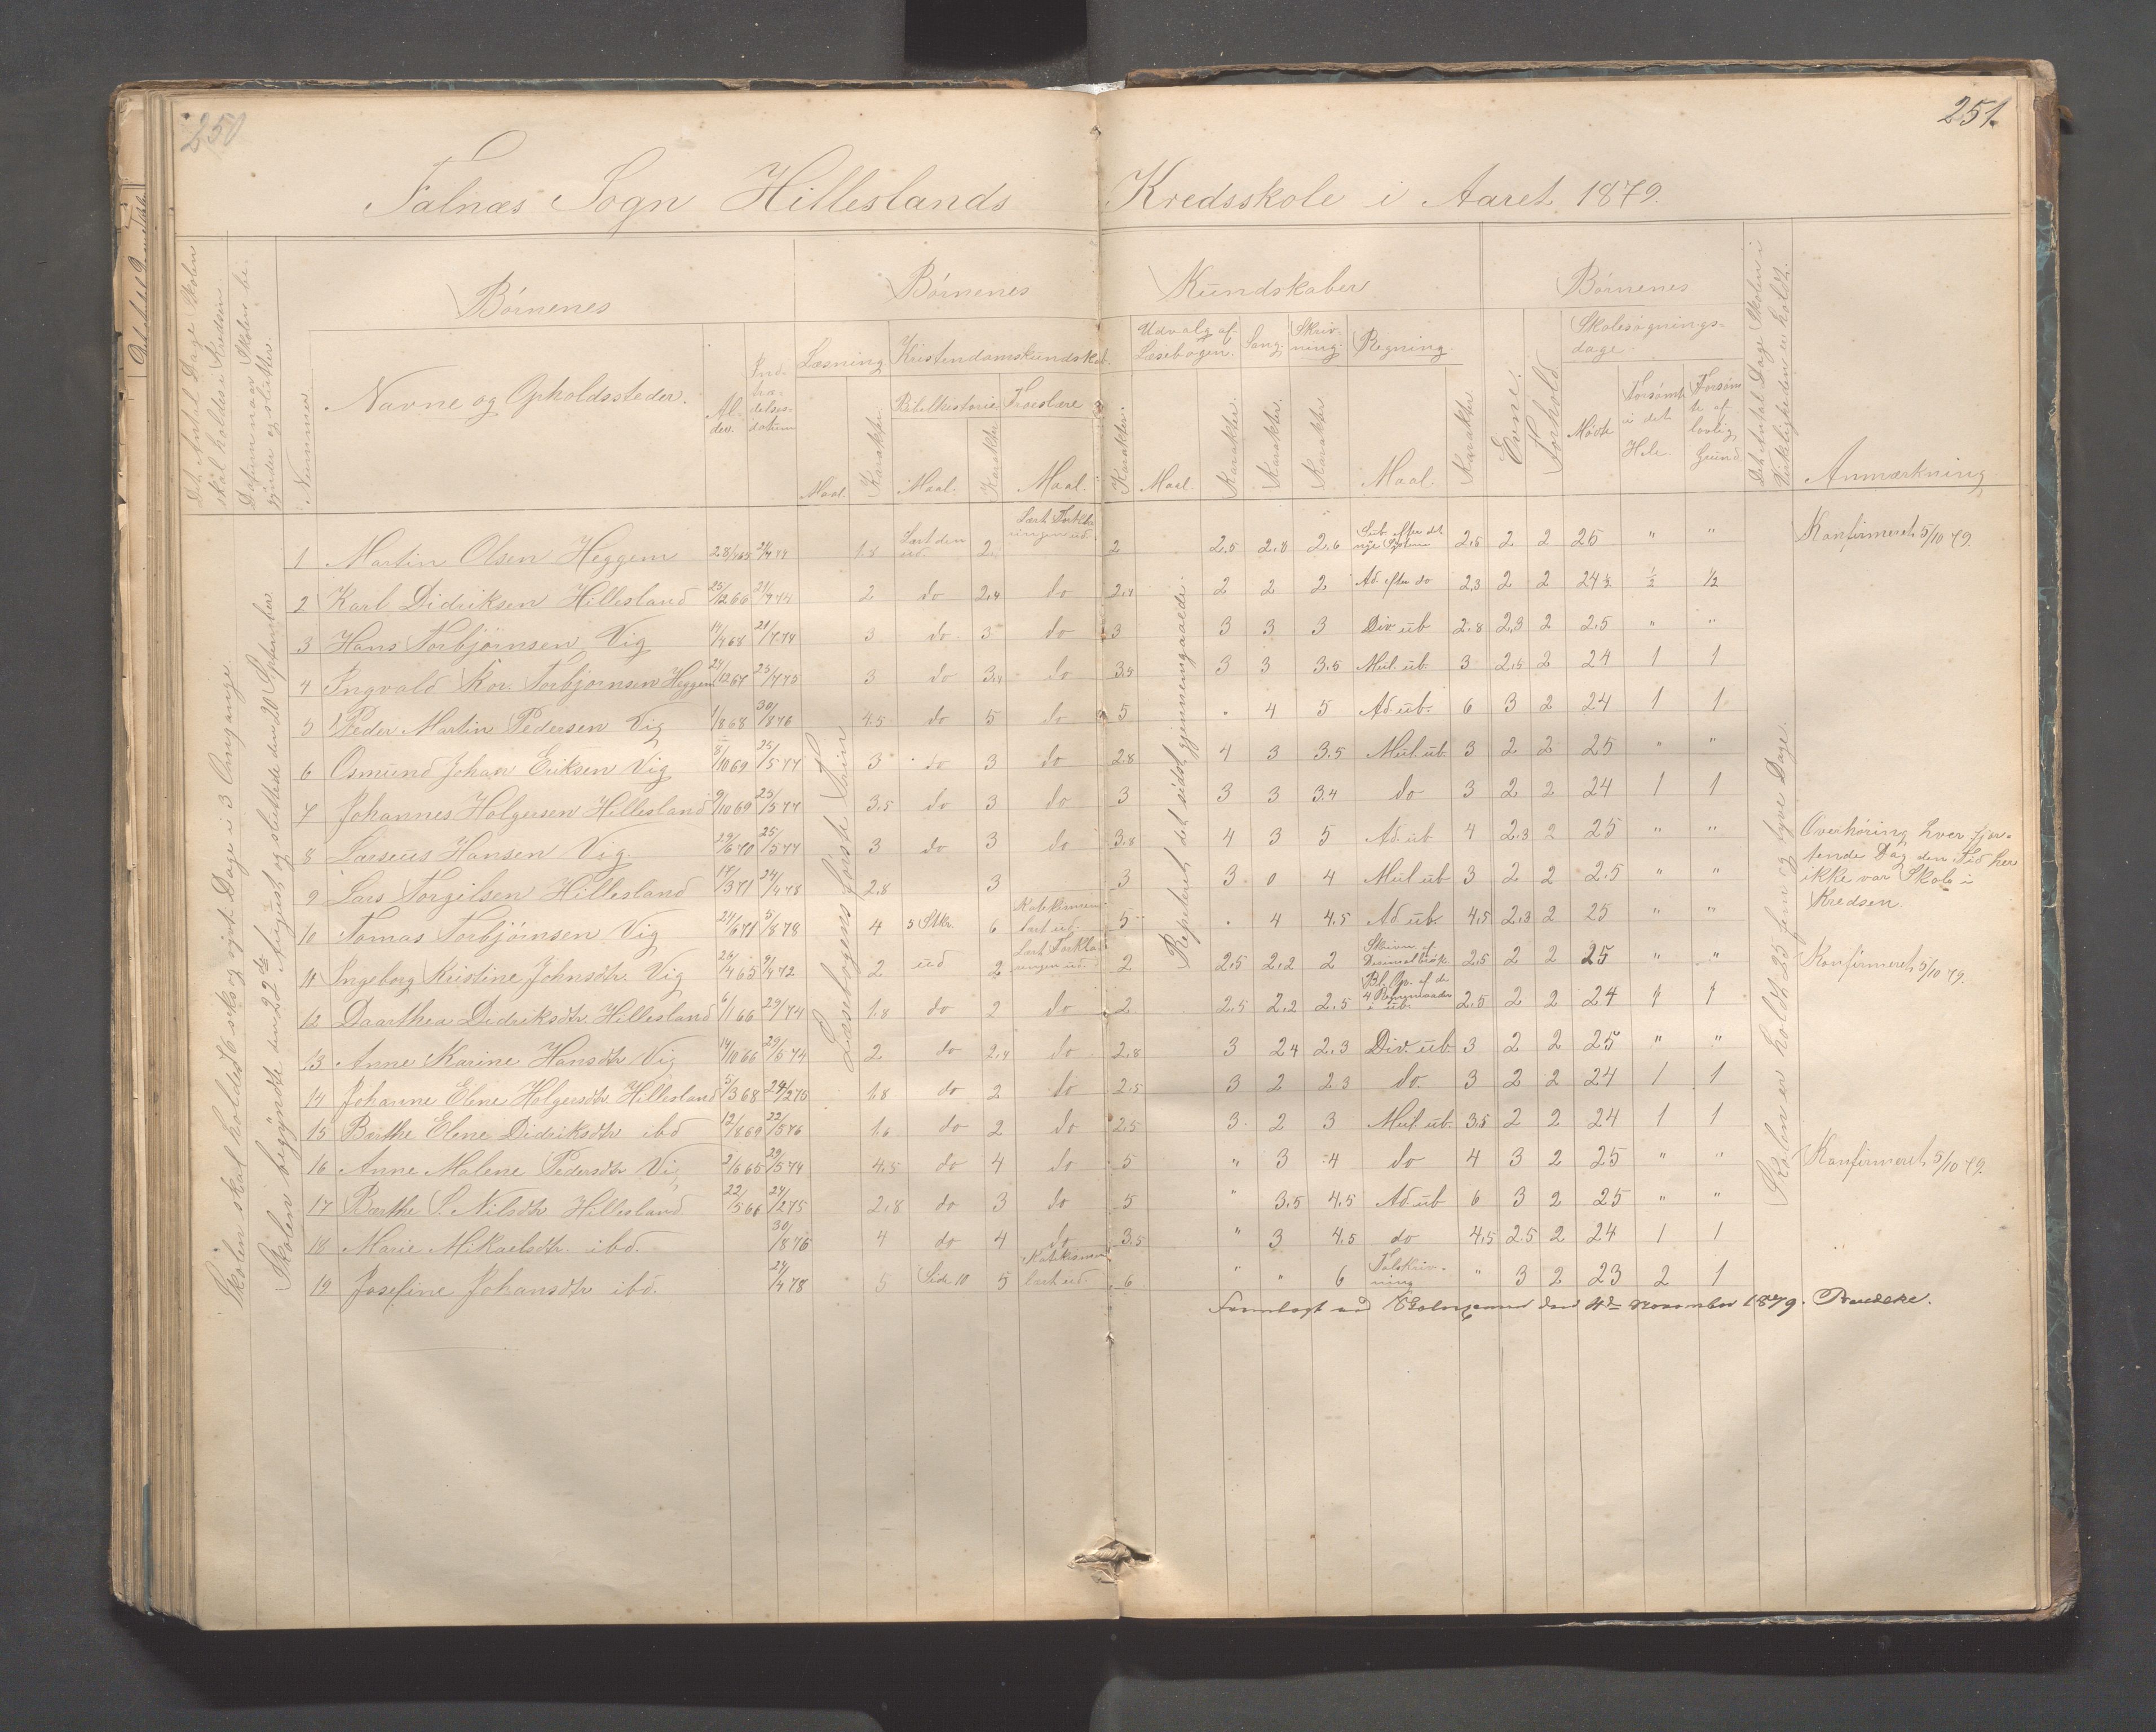 250
251.
Falnæs Sogn Hilleslands Kredsskole i Aaret 1879.
Det Antal Dage Skolen
skal holdes i Kredsen.
Datum naar Skolen be-
gynder og slutter.
Nummer.
Børnenes
Navne og Opholdssteder.
Al-
der.
Ind-
træ-
delses-
datum
Børnenes Kundskaber
Læsning
Maal.
Karakter.
Kristendomskundskab.
Bibelhistorie
Maal.
Karakter
Troeslære
Maal.
Karakter.
Udvalg af
Læsebogen.
Maal.
Karakter.
Sang.
Karakter.
Skriv-
ning.
Karakter
Regning.
Maal.
Karakter
Evne.
Forhold
Børnenes
Skolesøgnings-
dage.
Mødt
Forsømt
i det
Hele.
Forsøm-
te af
lovlig
Grund
Det Antal Dage Skolen i
Virkeligheden er holdt.
Anmærkning
Skolen skal holdes 76 seks og syvti Dage i 3 Omgange.
Skolen begyndte den 22de August og sluttede den 20 September
Læsebogens første Trin
Repeteret det sidst gjennemgaaede.
Skolen er holdt 25 fem og tyve Dage.
1 Martin Olsen Heggem 1.8 Læst den ud. 2 Læst Forklaringen ud. 2 2,5 2,8 2,6 Sub. efter det nye System 2,5 2 2 25 " " Konfirmeret 5/10 79.
2 Karl Didriksen Hillesland 25/12 66 21/7 74 2 do 2,4 do 2,4 2 2 2 Ad. efter do 2,3 2 2 24 ½ ½ ½
3 Hans Torbjørnsen Vig 14/4 68 21/7 74 3 do 3 do 3 3 3 3 Div. ub 2,8 2,3 2 25 " "
4 Ingvald Kor. Torbjørnsen Heggem 24/12 67 25/7 75 3 do 3,4 do 3,5 3 3 3,5 Mul. ub. 3 2,5 2 24 1 1
5 Peder Martin Pedersen Vig 1/8 68 30/8 76 4.5 do 5 do 5 . 4 5 Ad. ub. 6 3 2 24 1 1
6 Osmund Johan Eriksen Vig 8/10 69 25/5 77 3 do 3 do 2.8 4 3 3.5 Mul. ub. 3 2 2 25 " "
7 Johannes Holgersen Hillesland 9/10 69 25/5 77 3.5 do 3 do 3 3 3 3.4 do 3 2 2 24 1 1
8 Larseus Hansen Vig 29/6 70 25/5 77 3 do 3 do 3.8 4 3 5 Ad. ub 4 2.3 2 25 " " Overhøring hver fjor-
tende Dag den Tid her
ikke var Skole i
Kredsen
9 Lars Torgilsen Hillesland 17/3 71 24/4 78 2.8 3 3 3 0 4 Mul ub 3 2 2 25 " "
10 Tomas Torbjørnsen Vig 24/6 71 5/8 78 4 5 Stkr. 6 Katekismen læst ud. 5 . 4 4.5 Ad. ub. 4,5 2,3 2 25 " "
11 Ingeborg Kristine Johnsdtr. Vig 26/4 65 9/4 72 2 ud 2 Læst Forklaringen ud. 2 2,5 2,2 2 Skrivn. af Decimalbrøk 2,5 2 2 25 " " Konfirmeret 5/10 79.
12 Daarthea Didriksdtr. Hillesland 6/1 66 1.8 do 2 do 2 2,5 2,2 2,5 2,5 2 2 24 1 1
13 Anne Karine Hansdtr Vig 14/10 66 29/5 74 2 do 2,4 do 2,8 3 2 4 2,3 Div. ub 3 2 2 25 " "
14 Johanne Elene Holgersdtr. Hillesland 5/3 68 24/2 75 1.8 do 2 do 2.5 3 2 2 3 do. 3 2 2 24 1 1
15 Birthe Elene Didriksdtr ibd 12/8 69 22/5 76 1.6 do 2 do 2.5 3 2 3 Mul ub. 3.5 2 2 24 1 1
16 Anne Malene Pedersdtr Vig 2/6 65 29/5 74 4.5 do 4 do 5 " 3 4 do 4 3 2 25 " " Konfirmeret 5/10 79.
17 Berthe S. Nilsdtr Hillesland 22/5 66 24/2 75 2,8 do 3 do 5 " 3.5 4.5 Ad. ub 6 3 2 25 " "
18 Marie Mikaelsdtr. ibd. 30/8 76 4 do 4 do 3.5 " 3 4.5 do 4,5 2.5 2 24 1 1
19 Josefine Johansdtr ibd. 24/4 78 5 Side 10 5 Katekismen læst ud. 6 " " 6 Talskriv-
ning " 3 2 23 2 1
Fremlagt ved Skolexamen den 4de November 1879.